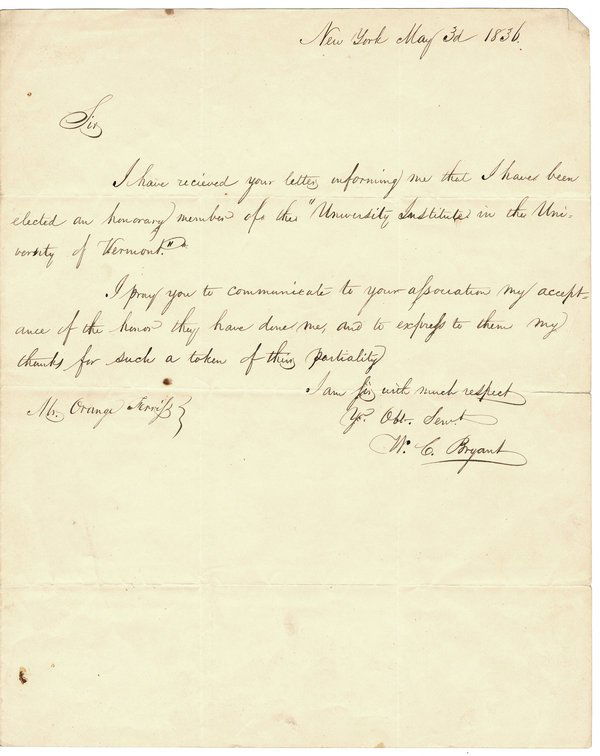 New York May 3d 1836.
Sir
I have recieved your letter informing me that I have been
elected an honorary member of the "University Institute in the Uni-
versity of Vermont."
I pray you to communicate to your association my accept-
ance of the honor they have done me, and to express to them my
thanks for such a token of their partiality
I am Sir with much respect
Yr. Obt. Servt
Mr. Orange Ferriss
W. C. Bryant